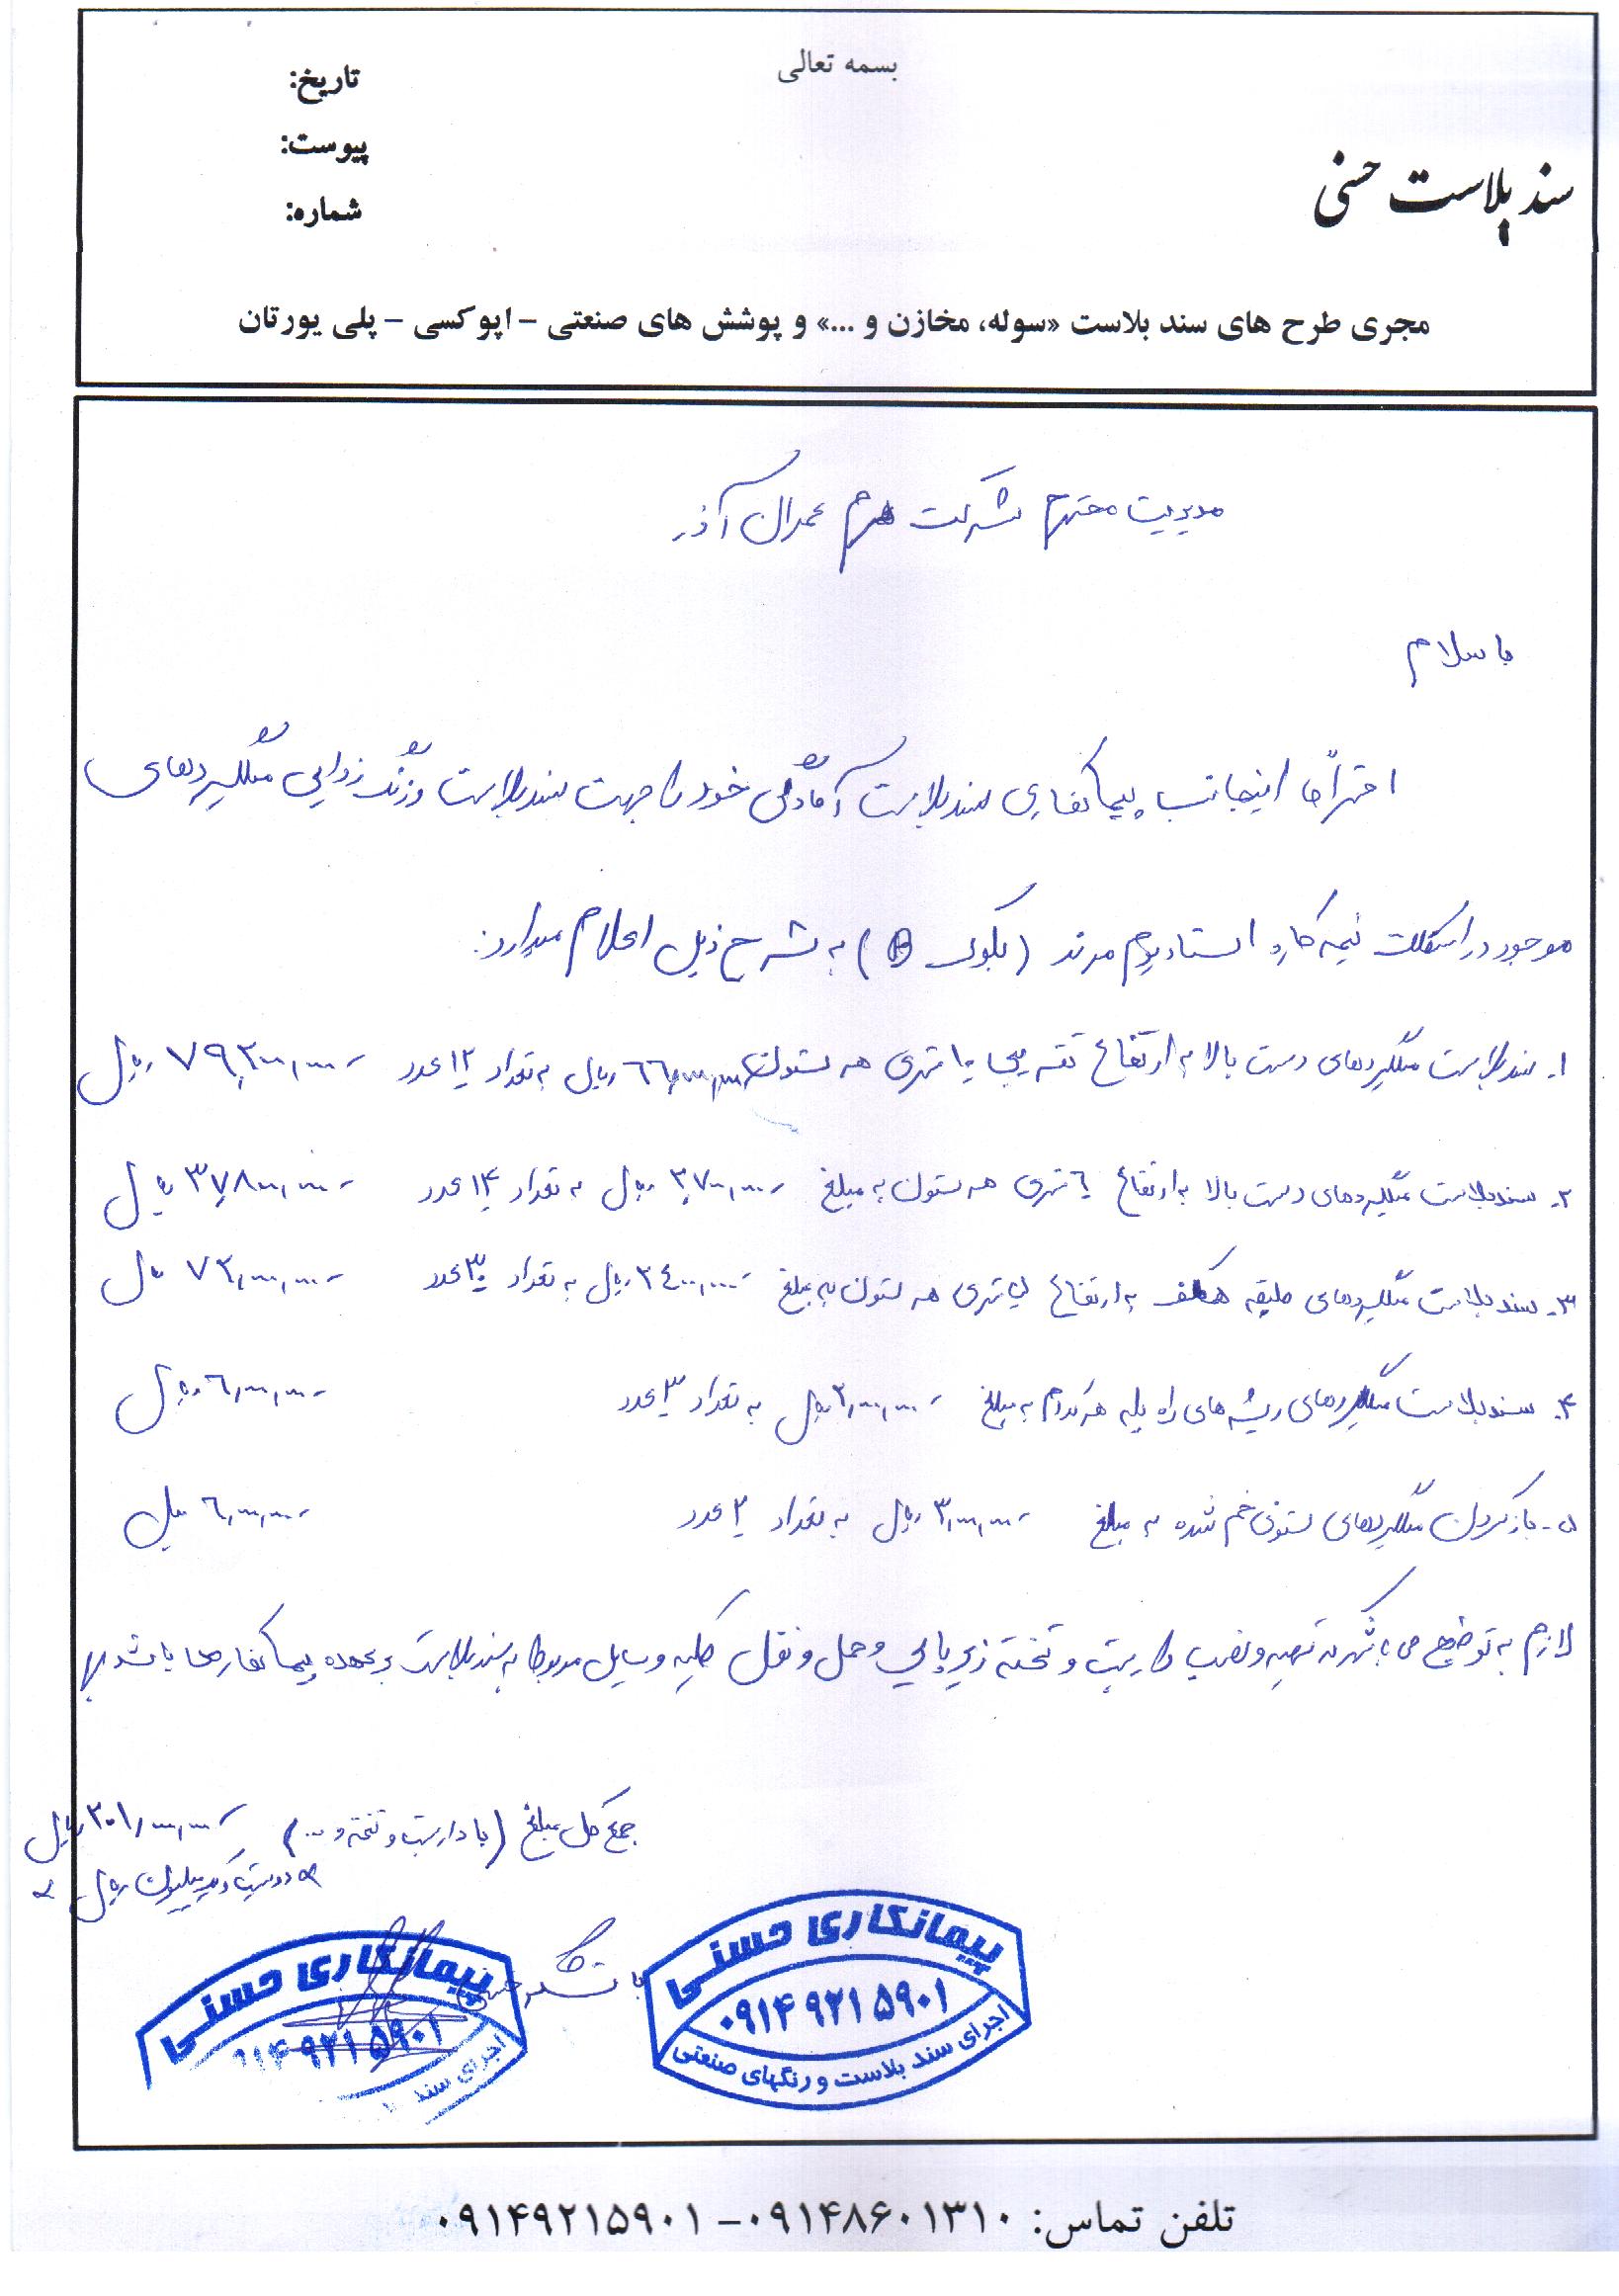 بسمه تعالی
تاریخ:
پیوست:
شماره:
سند بلاست حسنی
مجری طرح های سند بلاست «سوله، مخازن و ...» و پوشش های صنعتی - اپوکسی - پلی یورتان
مدیریت محترم شرکت هرم عمران آذر
با سلام
احتراماً اینجانب پیمانکاری سندبلاست آمادگی خود را جهت سندبلاست و زنگ زدایی میلگردهای
موجود در اسکلت نیمه کاره استادیوم مرند (بلوک B) به شرح ذیل اعلام میدارد:
۱- سندبلاست میلگردهای دست بالا به ارتفاع تقریبی ۱۰ متری هر ستون ۶۶,۰۰۰,۰۰۰ ریال به تعداد ۱۲ عدد ۷۹,۲۰۰,۰۰۰ ریال
۲- سندبلاست میلگردهای دست بالا به ارتفاع ۶ متری هر ستون به مبلغ ۲,۷۰۰,۰۰۰ ریال به تعداد ۱۴ عدد ۳۷,۸۰۰,۰۰۰ ریال
۳- سندبلاست میلگردهای طبقه همکف به ارتفاع متری هر ستون به مبلغ ۲۴۰۰,۰۰۰ ریال به تعداد ۳۰ عدد ۷۲,۰۰۰,۰۰۰ ریال
۴- سندبلاست میلگردهای ریشه های راه پله هر کدام به مبلغ ۲,۰۰۰,۰۰۰ ریال به تعداد ۳ عدد ۶,۰۰۰,۰۰۰ ریال
۵- باز کردن میلگردهای ستون خم شده به مبلغ ۳,۰۰۰,۰۰۰ ریال به تعداد ۲ عدد ۶,۰۰۰,۰۰۰ ریال
لازم به توضیح می باشد که تهیه و نصب داربست و تخته زیرپایی و حمل و نقل کلیه وسایل مربوط به سندبلاست بر عهده پیمانکار می باشد.
جمع کل مبلغ (با داربست و تخته و ...) ۲۰۱,۰۰۰,۰۰۰ ریال
دویست و یک میلیون ریال
با تشکر حسنی
پیمانکاری حسنی
۰۹۱۴ ۹۲۱ ۵۹۰۱
اجرای سند بلاست و رنگهای صنعتی
پیمانکاری حسنی
۹۱۴ ۹۲۱ ۵۹۰۱
اجرای سند
تلفن تماس: ۰۹۱۴۸۶۰۱۳۱۰ - ۰۹۱۴۹۲۱۵۹۰۱